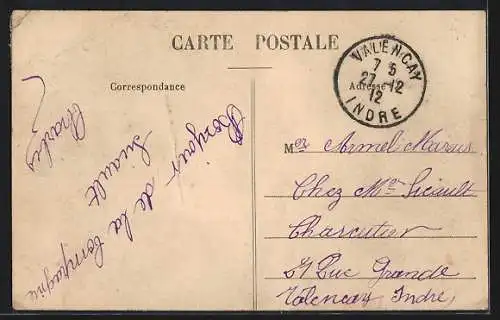 CARTE POSTALE
Correspondance
Adresse
VALENÇAY
7 5
27 -12
12
INDRE
Bonjour
de la Compagnie
Siault
Charles
Mer Armel Marius
Chez Mr Sicault
Charcutier
Rue Grande
Valencay Indre